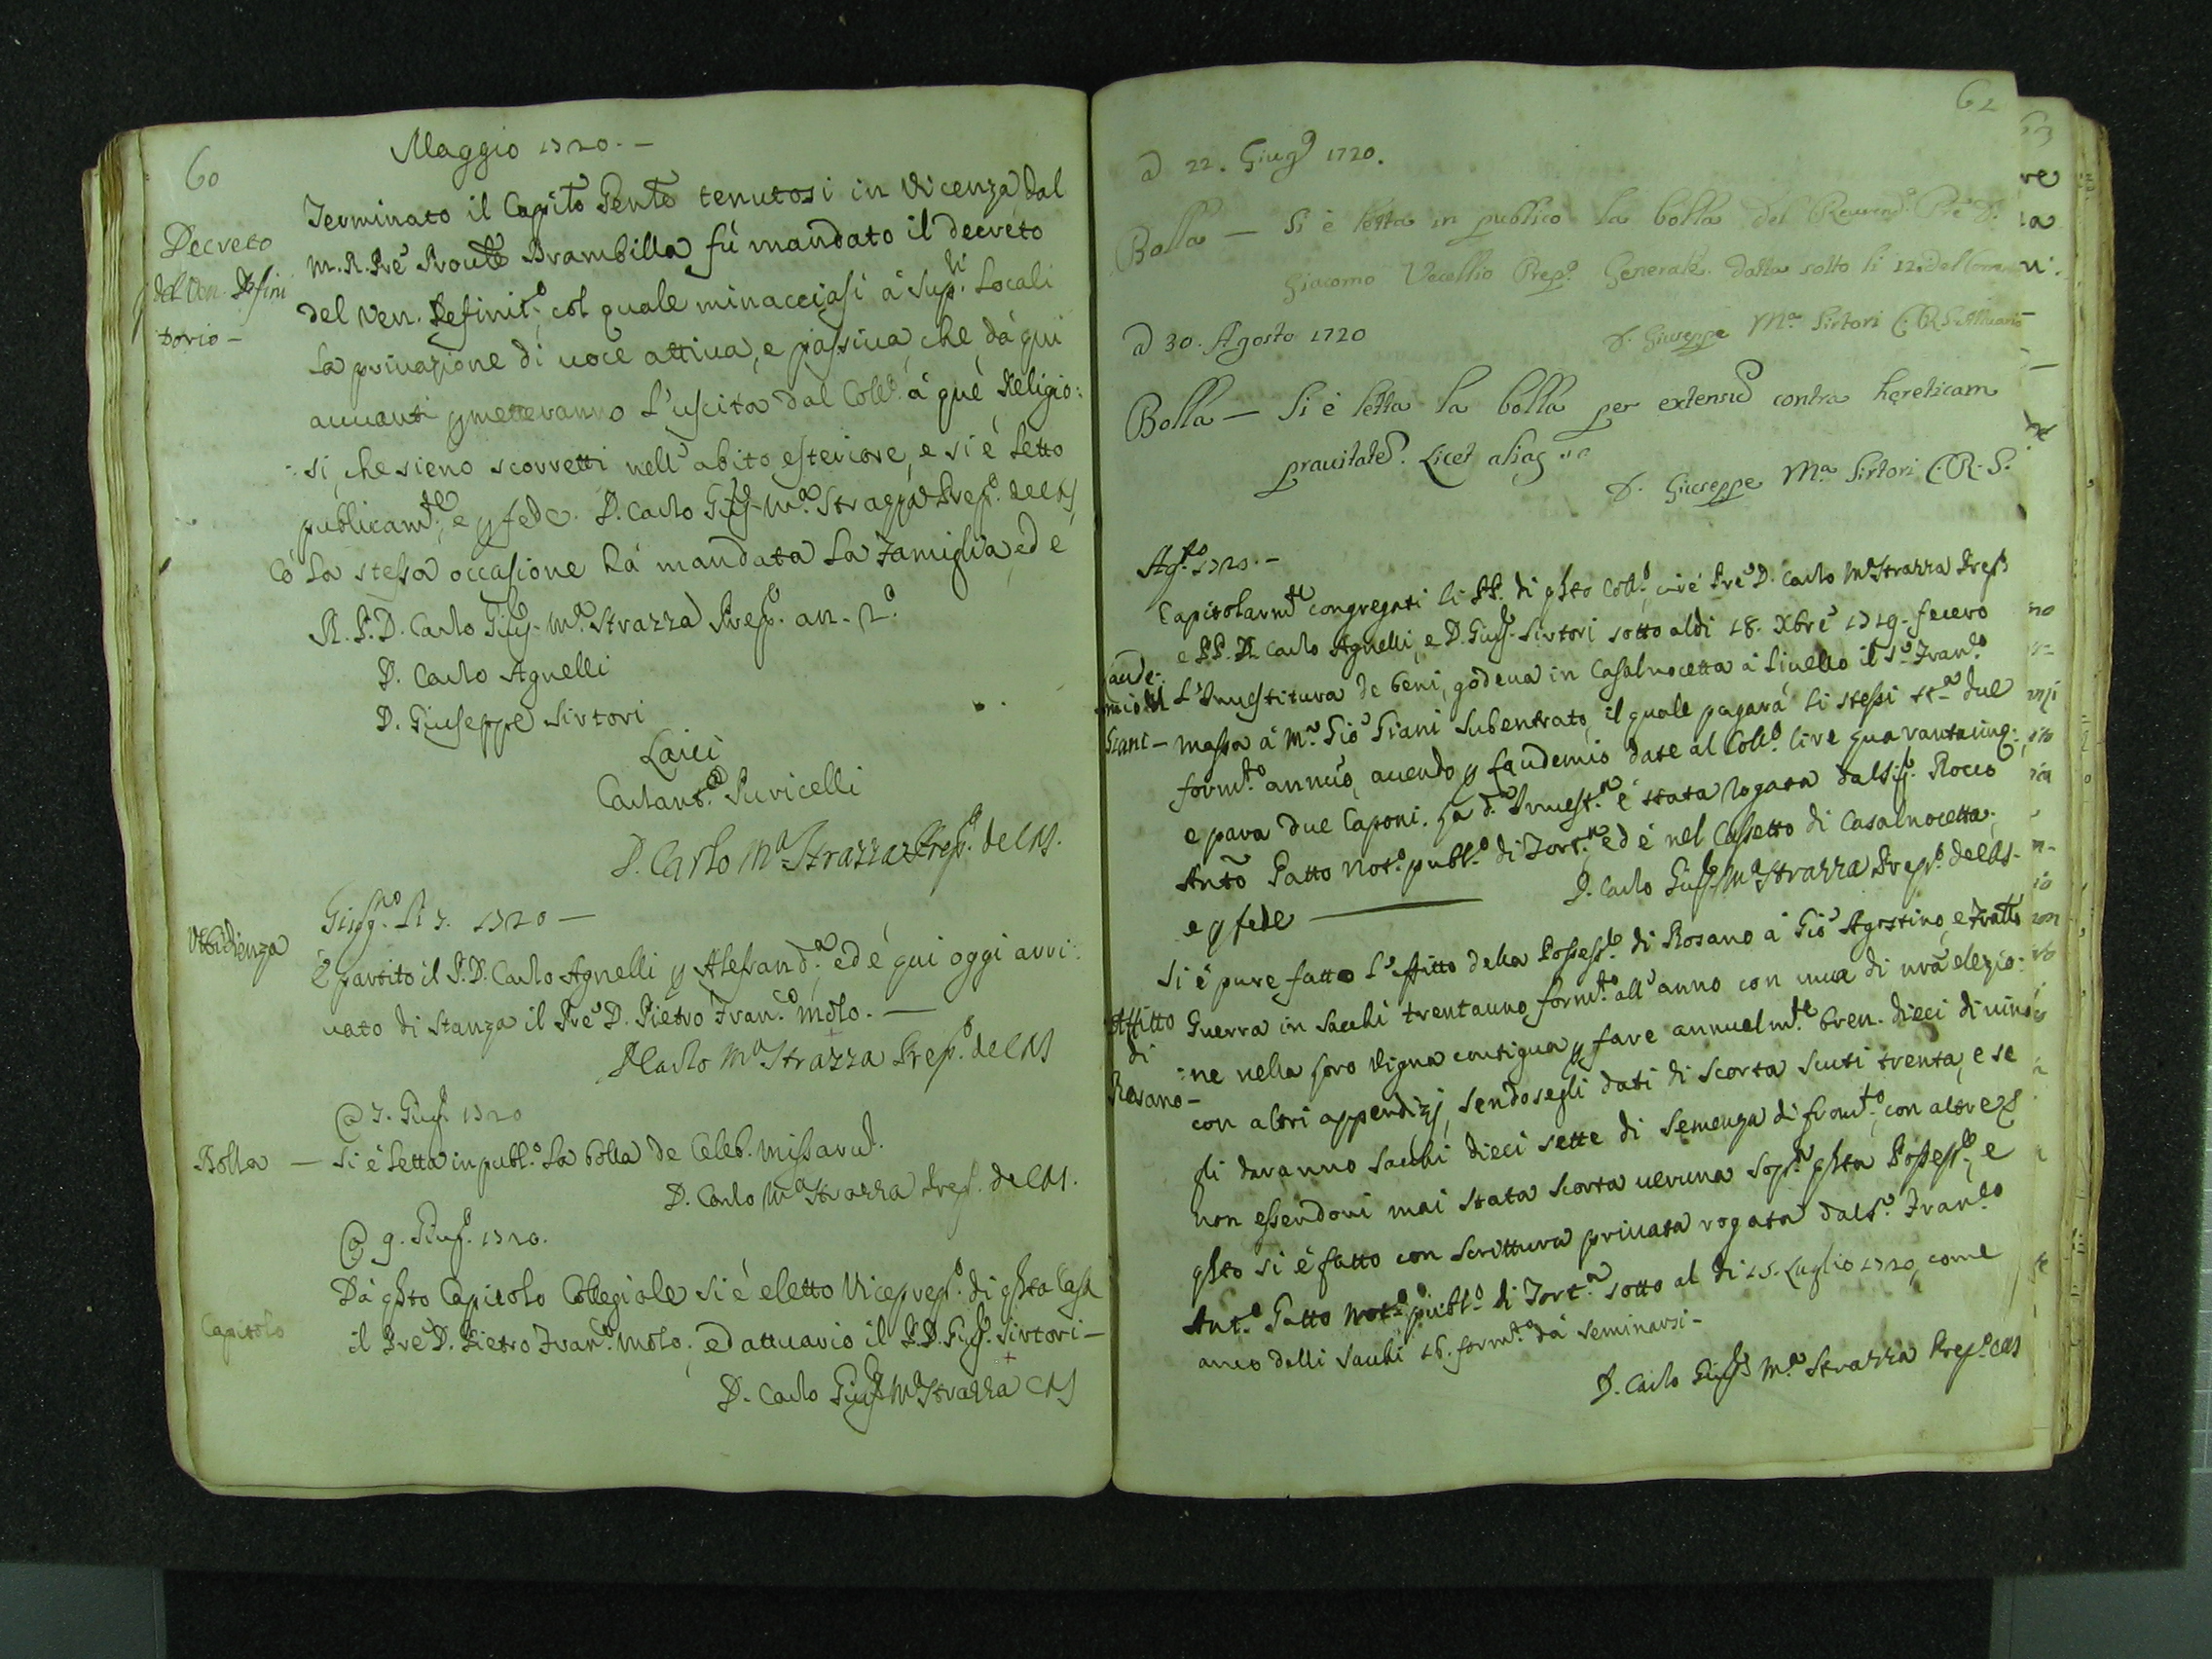 60
Maggio 1720. -
Decreto
del Ven. Defini
torio -
Terminato il Capito Gente tenutosi in Vicenza, dal
M. R. Pre Proule Brambilla fù mandato il decreto
del Ven. Definit.o, col quale minacciasi à Sup.ri Locali
la privazione di uoce attiua, e passiua, che dà qui
auuanti p metteranno l'uscita dal Coll.o à què Religio:
:si, che sieno scorretti nell'abito esteriore, e si è letto
publicam.te, e p fede. D. Carlo Gius. M.a Strazza Prep.o de CRS
Cò la stessa occasione hà mandata la Famiglia, ed è
R. P. D. Carlo Gius. M.a Strazza Prep.o an. 2.o
D. Carlo Agnelli
D. Giuseppe Sirtori
Laici
Carlant.o Puricelli
D. Carlo M.a Strazza Prep.o de CRS.
Giug.no li 7. 1720 -
Vbbidienza
È partito il P. D. Carlo Agnelli p Alessand.a, ed è qui oggi arri:
uato di stanza il Pre D. Pietro Fran.o Molo. -
D Carlo M.a Strazza Prep.o de CRS
@ 7. Giug.o 1720
Bolla - Si è letta in publ.o la bolla de Celeb. Missarud.
D. Carlo M.a Strazza Prep. de CRS.
@ 9. Giug.o 1720.
Capitolo
Dà qsto Capitolo Collegiale si è eletto Viceprep.o di qsta Casa
il Pre D. Pietro Fran.o Molo, ed attuario il P. D. Gius.e Sirtori -
D. Carlo Gius.e M.a Strazza CRS
61
a 22. Giug.o 1720.
Bolla - Si è letta in publico la bolla del Reuerend.o Pre D.
Giacomo Vecellio Prep.o Generale. datta sotto li 12. del corrente
D. Giuseppe M.a Sirtori C. R. S. Attuario
a 30. Agosto 1720
Bolla - Si è letta la bolla per extensud contra hereticam
prauitated. Licet alias
D. Giuseppe M.a Sirtori C. R. S.
Ag.to 1720. -
Capitolarm.te congregati li PP. di qsto Coll.o, cioè Pre D. Carlo M.a Strazza Prep.o
e PP. D. Carlo Agnelli, e D. Gius.e Sirtori sotto aldi 18. Xbre 1719. fecero
Laude:
mio del
Giani -
L'Inuestitura de beni, godeua in Casalnocetta à liuello il S.r Fran.co
Massa à M.r Giò Giani subentrato, il quale pagarà li stessi st.a due
form.to annuo, auendo p laudemio date al Coll.o lire quarantacinq.
e para due Caponi. La d.a Inuest.a è stata rogata dal Sig.r Rocco
Anto Gatto Not.o publ.o di Tort.a, ed è nel Cassetto di Casalnocetta,
e p fede -
D. Carlo Gius. M.a Strazza Prep.o de CRS.
Si è pure fatto l'affitto della Possess.e di Rosano à Giò Agostino, e Fratto
Affitto
di
Rosano -
Guerra in sacchi trentauno form.to all'anno con uua di nrà elezio:
:ne nella loro Vigna contigua p fare annualm.te bren. dieci di uino
con altri appendizi, sendosegli dati di scorta scuti trenta, e se
gli daranno sacchi dieci sette di semenza di from.to, con altre 28
non essendoui mai stata scorta ueruna sop.a qsta Possess.e, e
qsto si è fatto con scrittura priuata rogata dal S.r Fran.co
Ant.o Gatto Not.o publ.o di Tort.a sotto al di 15. Luglio 1720, come
anco delli sacchi 16. form.to dà seminarsi -
D. Carlo Gius.e M.a Strazza Prep.o CRS